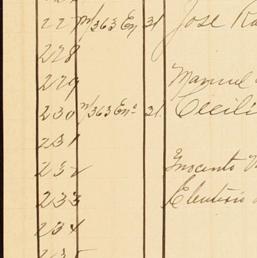 227 n/363 En 31 Jose
228
229 Manuel
230 n/363 Enº 21 Cecili
231
232 Inocente
233 Eleuterio
234
235